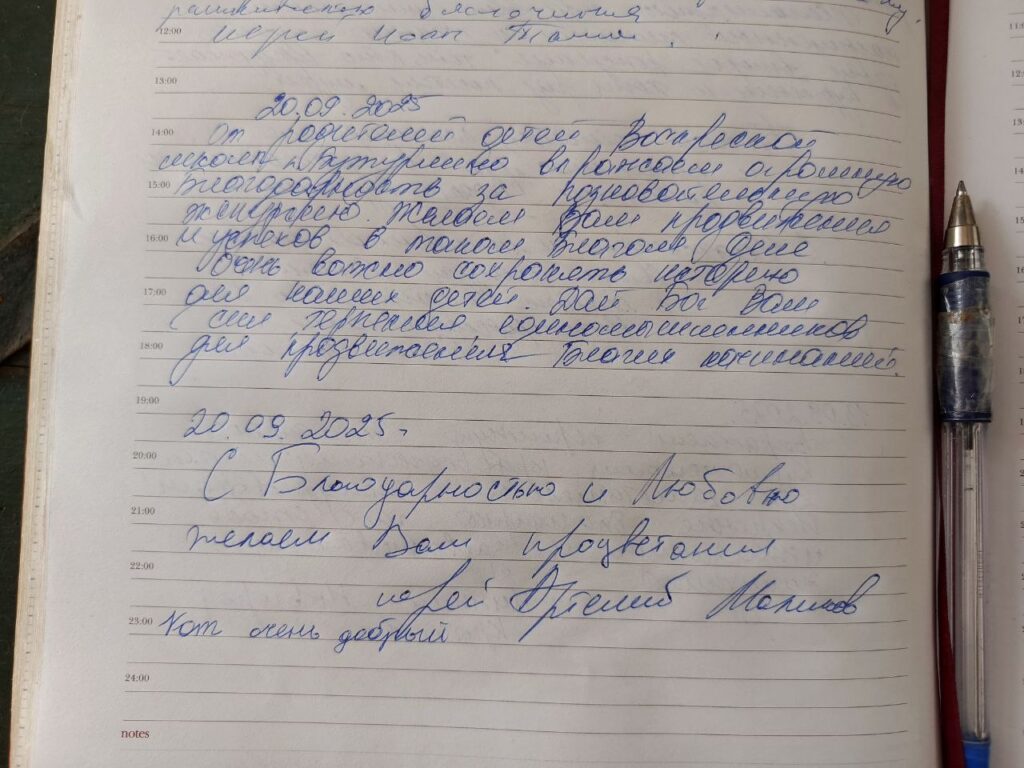 благочиния
12:00
иерей Иоан
13:00
20.09.2025
14:00
от родителей детей Воскресной
школы выражаем огромную
15:00
Благодарность за познавательную
экскурсию. Желаем Вам продвижения
16:00
и успехов в таком Благом Деле
Очень важно сохранять историю
17:00
для наших детей. Дай Бог Вам
сил терпения единомышленников
18:00
для продвижения Благих начинаний.
19:00
20.09.2025г
20:00
С Благодарностью и Любовью
21:00
желаем Вам процветания
22:00
иерей
23:00
Кот очень добрый
24:00
notes